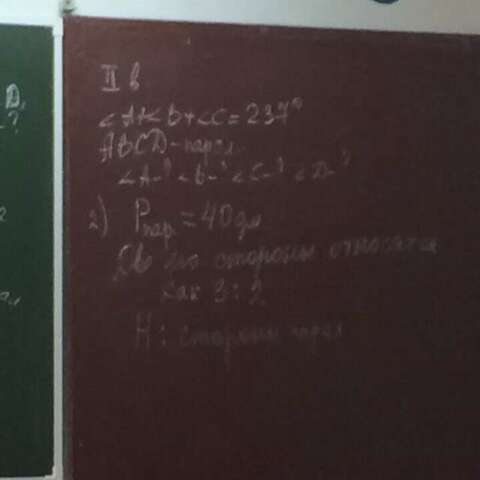 D,
-?
2
II в
<A+<B+<C=237°
ABCD-парал.
<A-? <B-? <C-? <D-?
2) Pпар.=40дм
его стороны относятся
как 3:2
Н: стороны парал